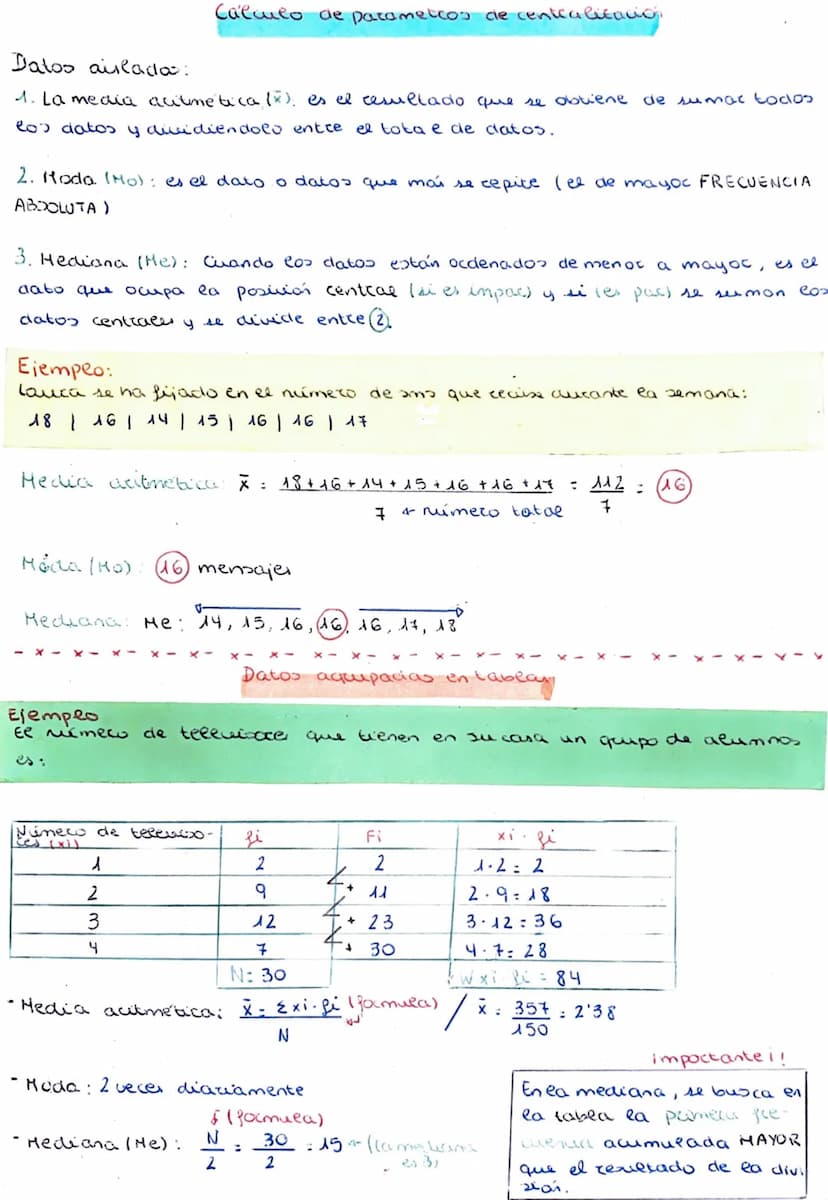 Cálculo de parametros de centralización
Datos aislados:
1. La media aritmética (x̄): es el resultado que se obtiene de sumar todos
los datos y dividiendolo entre el total de datos.
2. Moda (Mo): es el dato o datos que más se repite (el de mayor FRECUENCIA
ABSOLUTA)
3. Mediana (Me): Cuando los datos están ordenados de menor a mayor, es el
dato que ocupa la posición central (si es impar) y si (es par) se suman los
datos centrales y se divide entre 2.
Ejemplo:
Laura se ha fijado en el número de sms que recibe durante la semana:
18 | 16 | 14 | 15 | 16 | 16 | 17
Media aritmética: x̄ = 18+16+14+15+16+16+17 / 7 ← número total = 112 / 7 = 16
Moda (Mo): 16 mensajes
Mediana: Me: 14, 15, 16, 16, 16, 17, 18
Datos agrupados en tablas
Ejemplo
El número de televisores que tienen en su casa un grupo de alumnos
es:
Número de televiso- fi Fi xi · fi
res (xi)
1 2 2 1·2= 2
2 9 + 11 2·9=18
3 12 + 23 3·12=36
4 7 + 30 4·7= 28
N=30 xi fi = 84
- Media aritmética: x̄ = Σxi·fi / N (formula) / x̄ = 357 / 150 = 2'38
- Moda: 2 veces diariamente
(formula)
- Mediana (Me): N / 2 = 30 / 2 = 15 → (la mediana
es 3)
¡mportante¡!
En la mediana, se busca en
la tabla la primera fre-
cuencia acumulada MAYOR
que el resultado de la divi
sión.